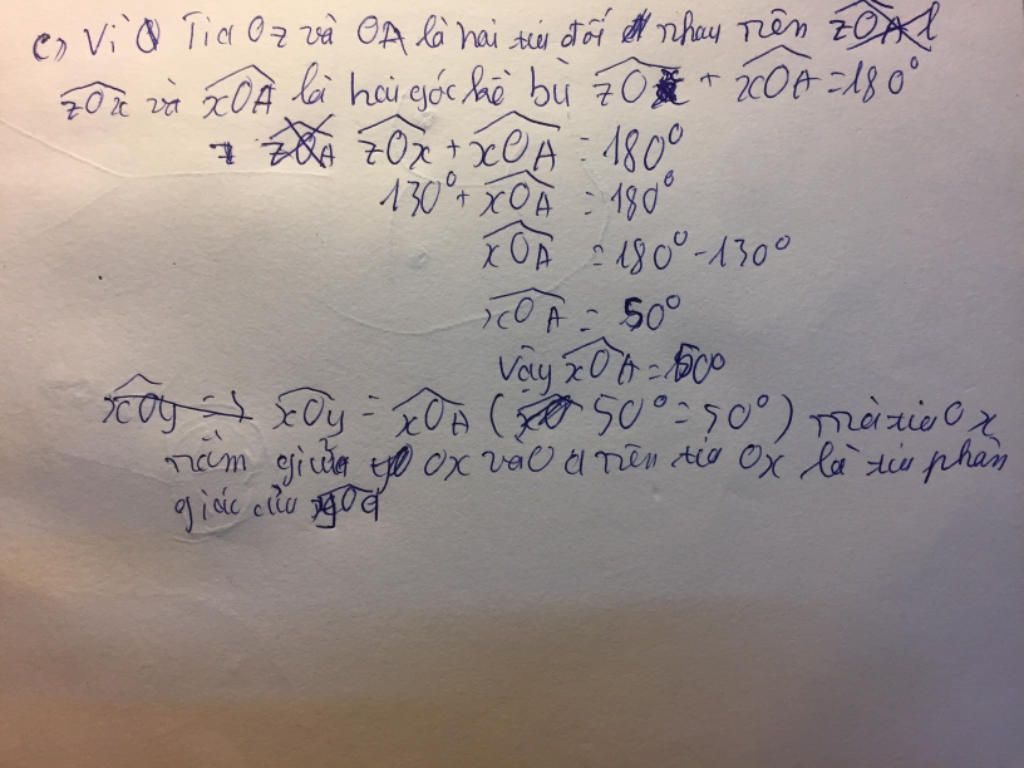 c) Vì Tia Oz và OA là hai tia đối nhau nên zOA
zOx và xOA là hai góc kề bù zOx + xOA = 180°
zOA zOx + xOA = 180°
130° + xOA = 180°
xOA = 180° - 130°
xOA = 50°
Vậy xOA = 50°
xOy => xOy = xOA ( 50° = 50° ) mà tia Ox
nằm giữa Ox và Oa nên tia Ox là tia phân
giác của yOa